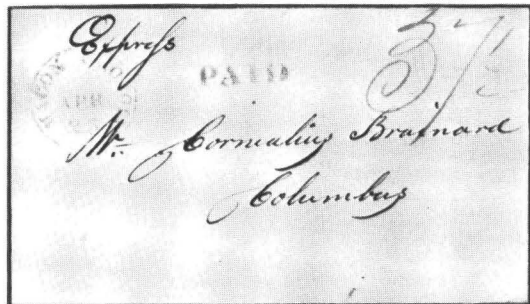 Express
PAID
37½
APR
Mr. Cornealius Brainard
Columbus